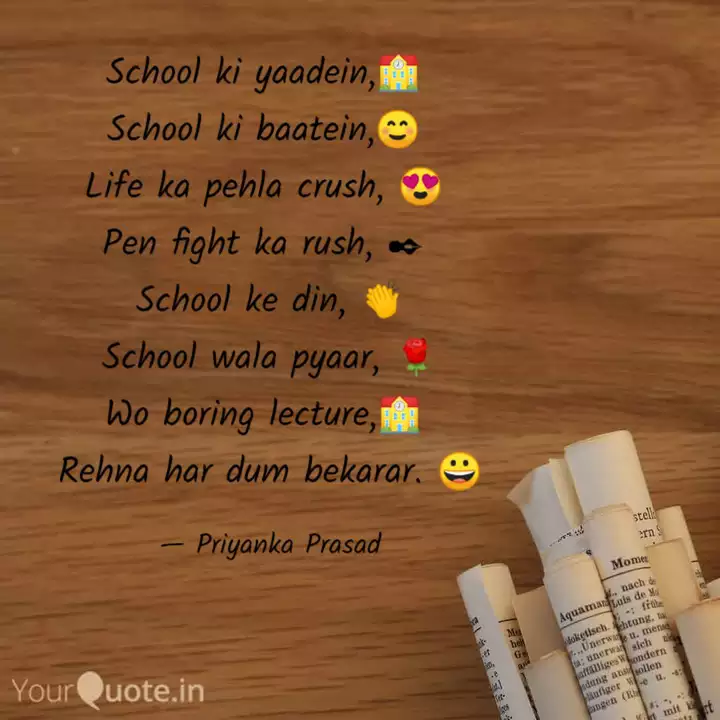 School ki yaadein,🏫
School ki baatein,😊
Life ka pehla crush, 😍
Pen fight ka rush, ✒
School ke din, 👏
School wala pyaar, 🌹
Wo boring lecture,🏫
Rehna har dum bekarar. 😀
— Priyanka Prasad
Aquamar
Luis de M
YourQuote.in